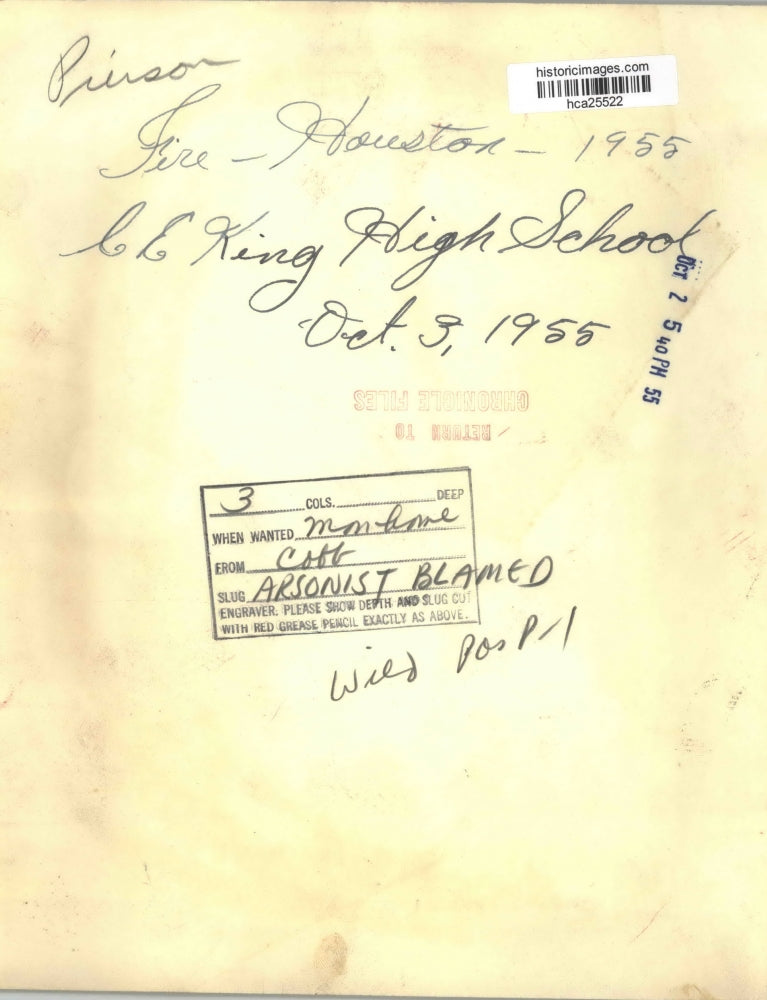 Pierson
historicimages.com
hca25522
Fire - Houston - 1955
C E King High School
Oct. 3, 1955
OCT 2 5 40 PM 55
CHRONICLE FILES
RETURN TO
3 COLS. DEEP
WHEN WANTED Mon home
FROM Cobb
SLUG ARSONIST BLAMED
ENGRAVER: PLEASE SHOW DEPTH AND SLUG CUT
WITH RED GREASE PENCIL EXACTLY AS ABOVE.
Wild Pos P-1